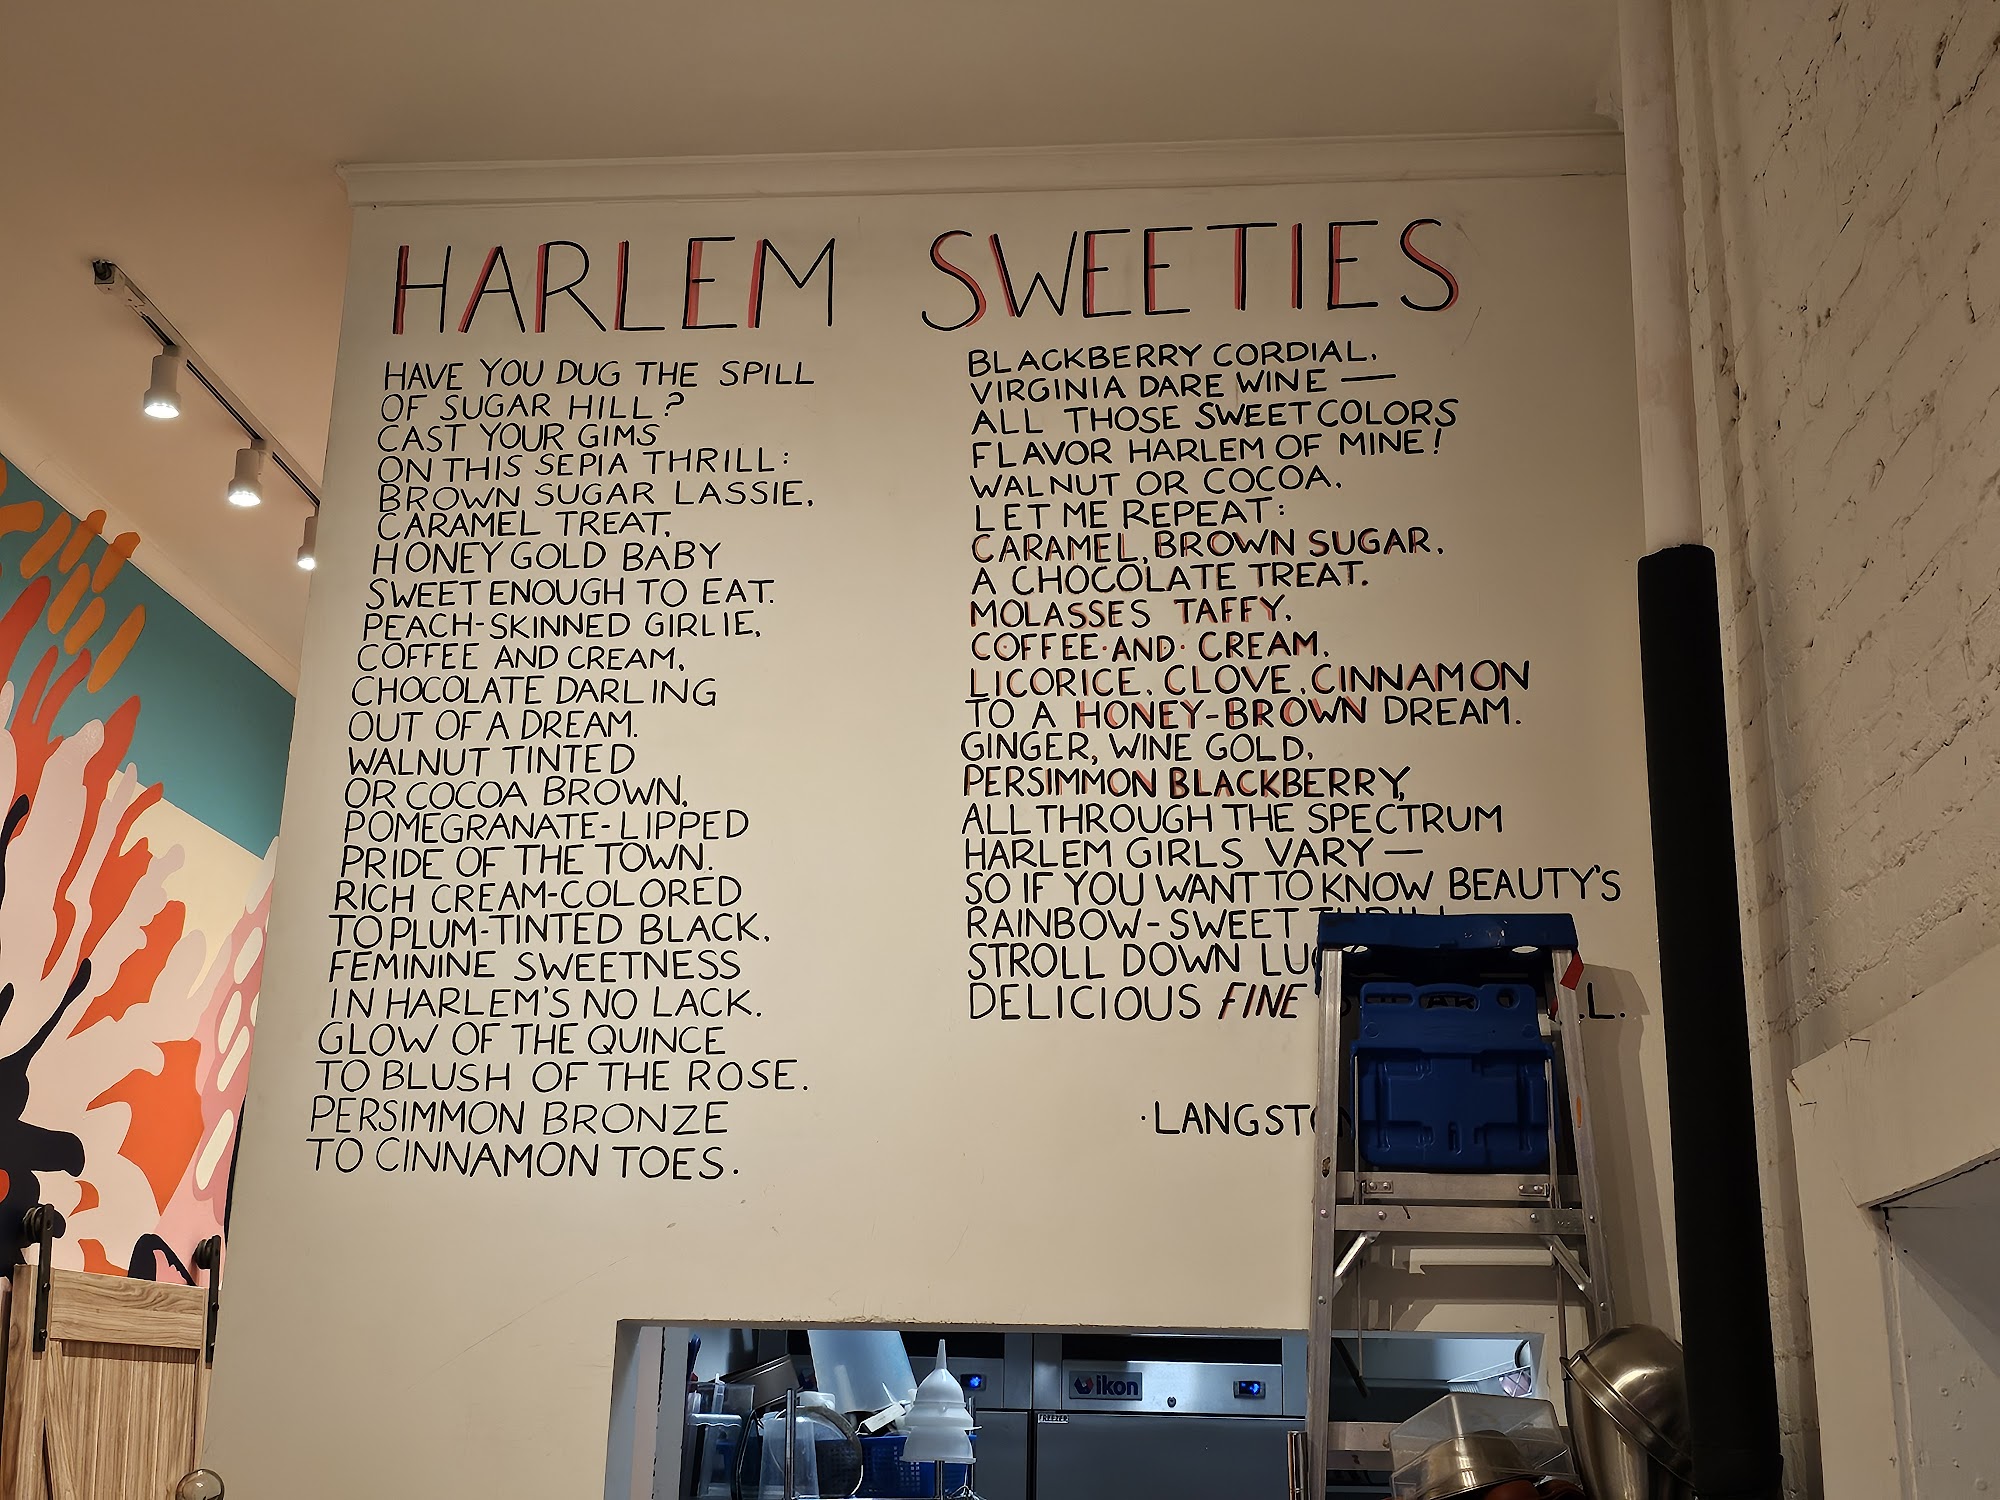 HARLEM SWEETIES
HAVE YOU DUG THE SPILL
OF SUGAR HILL?
CAST YOUR GIMS
ON THIS SEPIA THRILL:
BROWN SUGAR LASSIE,
CARAMEL TREAT,
HONEY GOLD BABY
SWEET ENOUGH TO EAT.
PEACH-SKINNED GIRLIE,
COFFEE AND CREAM,
CHOCOLATE DARLING
OUT OF A DREAM.
WALNUT TINTED
OR COCOA BROWN,
POMEGRANATE-LIPPED
PRIDE OF THE TOWN.
RICH CREAM-COLORED
TO PLUM-TINTED BLACK,
FEMININE SWEETNESS
IN HARLEM'S NO LACK.
GLOW OF THE QUINCE
TO BLUSH OF THE ROSE.
PERSIMMON BRONZE
TO CINNAMON TOES.
BLACKBERRY CORDIAL,
VIRGINIA DARE WINE —
ALL THOSE SWEET COLORS
FLAVOR HARLEM OF MINE!
WALNUT OR COCOA,
LET ME REPEAT:
CARAMEL, BROWN SUGAR,
A CHOCOLATE TREAT.
MOLASSES TAFFY,
COFFEE·AND·CREAM,
LICORICE, CLOVE, CINNAMON
TO A HONEY-BROWN DREAM.
GINGER, WINE GOLD,
PERSIMMON BLACKBERRY,
ALL THROUGH THE SPECTRUM
HARLEM GIRLS VARY —
SO IF YOU WANT TO KNOW BEAUTY'S
RAINBOW-SWEET
STROLL DOWN
DELICIOUS FINE
·LANGSTON
ikon
FREEZER